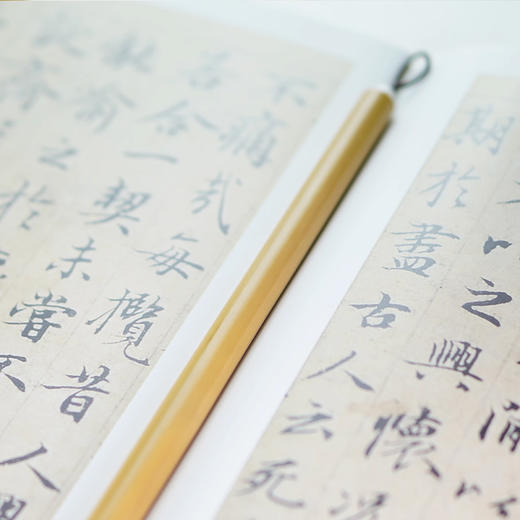 不以之興懷況
期於盡古人云死
不痛哉每攬昔人
若合一契未嘗不
能喻之於
誕齊